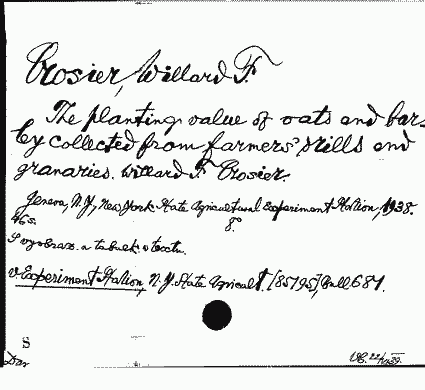 Crosier, Willard F.
The planting value of oats and bar-
ley collected from farmers' drills and
granaries. Willard F. Crosier.
Geneva, N.Y., New York State Agricultural Experiment Station, 1938.
46 s. 8°.
S vyobraz. a tabulk. v textu.
v. Experiment Station, N.Y. State Agricult. [85795] Bull 681.
S
Dar